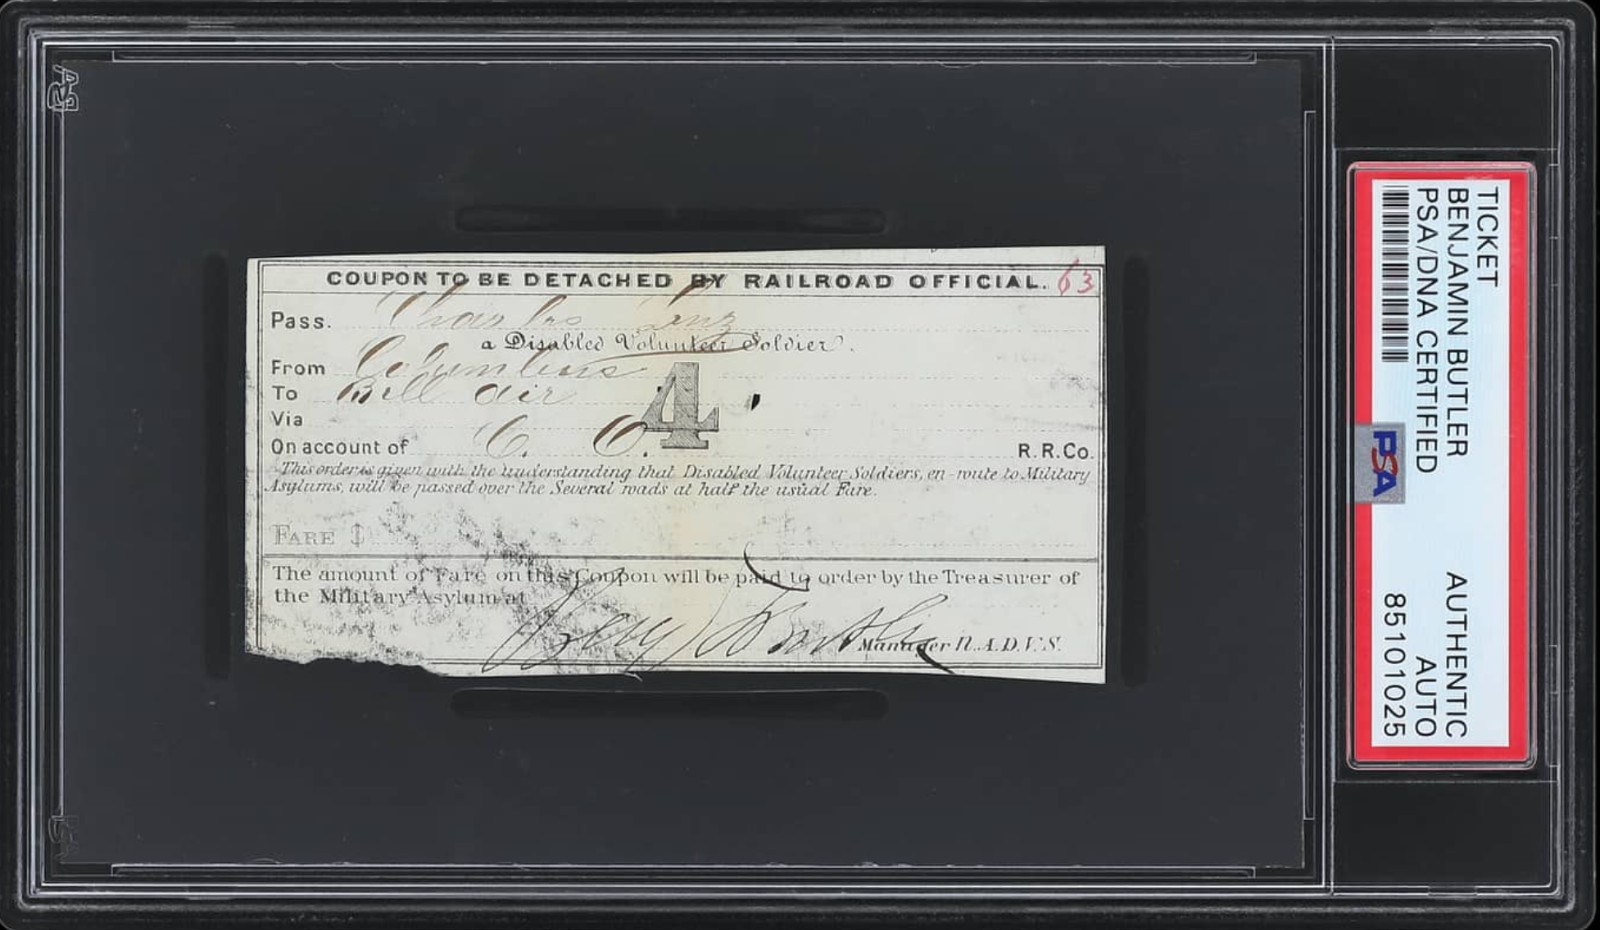 COUPON TO BE DETACHED BY RAILROAD OFFICIAL. 63
Pass. Charles Lenz
a Disabled Volunteer Soldier.
From Columbus
To Bell air
4
Via
On account of C. O. R.R.Co.
This order is given with the understanding that Disabled Volunteer Soldiers, en-route to Military
Asylums, will be passed over the Several roads at half the usual Fare.
FARE $
The amount of Fare on this Coupon will be paid to order by the Treasurer of
the Military Asylum at
Benj F Butler
Manager N.A.D.V.S.
TICKET
BENJAMIN BUTLER AUTHENTIC
PSA/DNA CERTIFIED AUTO
85101025
PSA